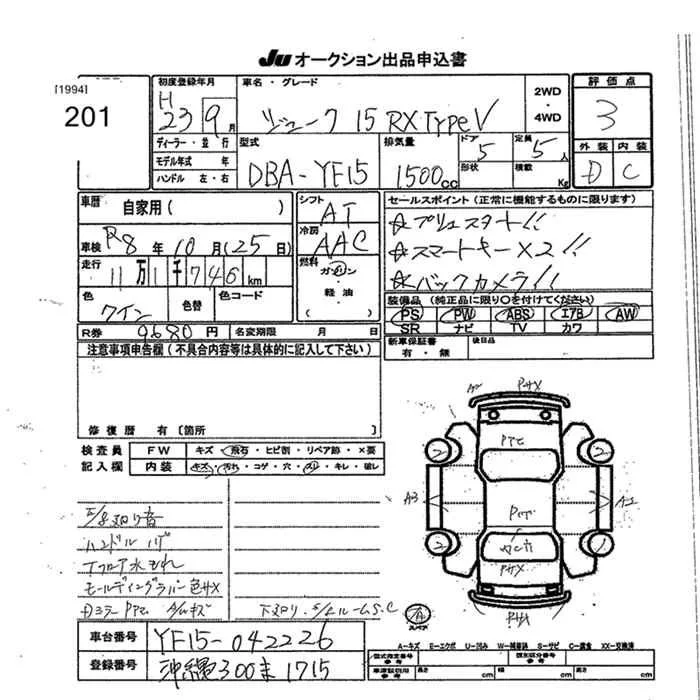 JU オークション出品申込書
[1994]
201
初度登録年月
H
23 9月
車名・グレード
ジューク 15 RX TypeV
2WD
・
4WD
評価点
3
ディーラー・並行
モデル年式 年
ハンドル 左・右
型式
DBA-YF15
排気量
1500cc
ドア
5
形状
定員
5人
積載
Kg
外装 内装
D C
車歴
自家用( )
シフト
AT
セールスポイント (正常に機能するものに限ります)
☆プッシュスタート!!
車検 R8年10月(25日)
冷房
AAC
☆スマートキー×2!!
走行
11万1千746km
燃料
ガソリン
・
軽油
( )
☆バックカメラ!!
色
ワイン
色替
色コード
装備品 (純正品に限り○を付けてください)
PS PW ABS エアB AW
SR ナビ TV カワ
R券 9680円 名変期限 月 日
新車保証書
有・無
後日品
注意事項申告欄(不具合内容等は具体的に記入して下さい)
修復歴 有〔箇所 〕
検査員
記入欄
FW キズ・飛石・ヒビ割・リペア跡・×要
内装 キズ・汚れ・コゲ・穴・スレ・キレ・破レ
ハンドルハゲ
Tフロア水もれ
モールディングラバー色サメ
Dミラー PTE A/Wキズ
下スリ
S.C
A
スペア
A3
A2
2
2
2
1
車台番号 YF15-042226
登録番号 沖縄300ま1715
A-キズ E-エクボ U-凹み W-補修跡 S-サビ C-腐食 XX-交換済
型式指定番号
参考
類別区分番号
参考
車庫証明用
参考
長さ cm
幅 cm
高さ cm